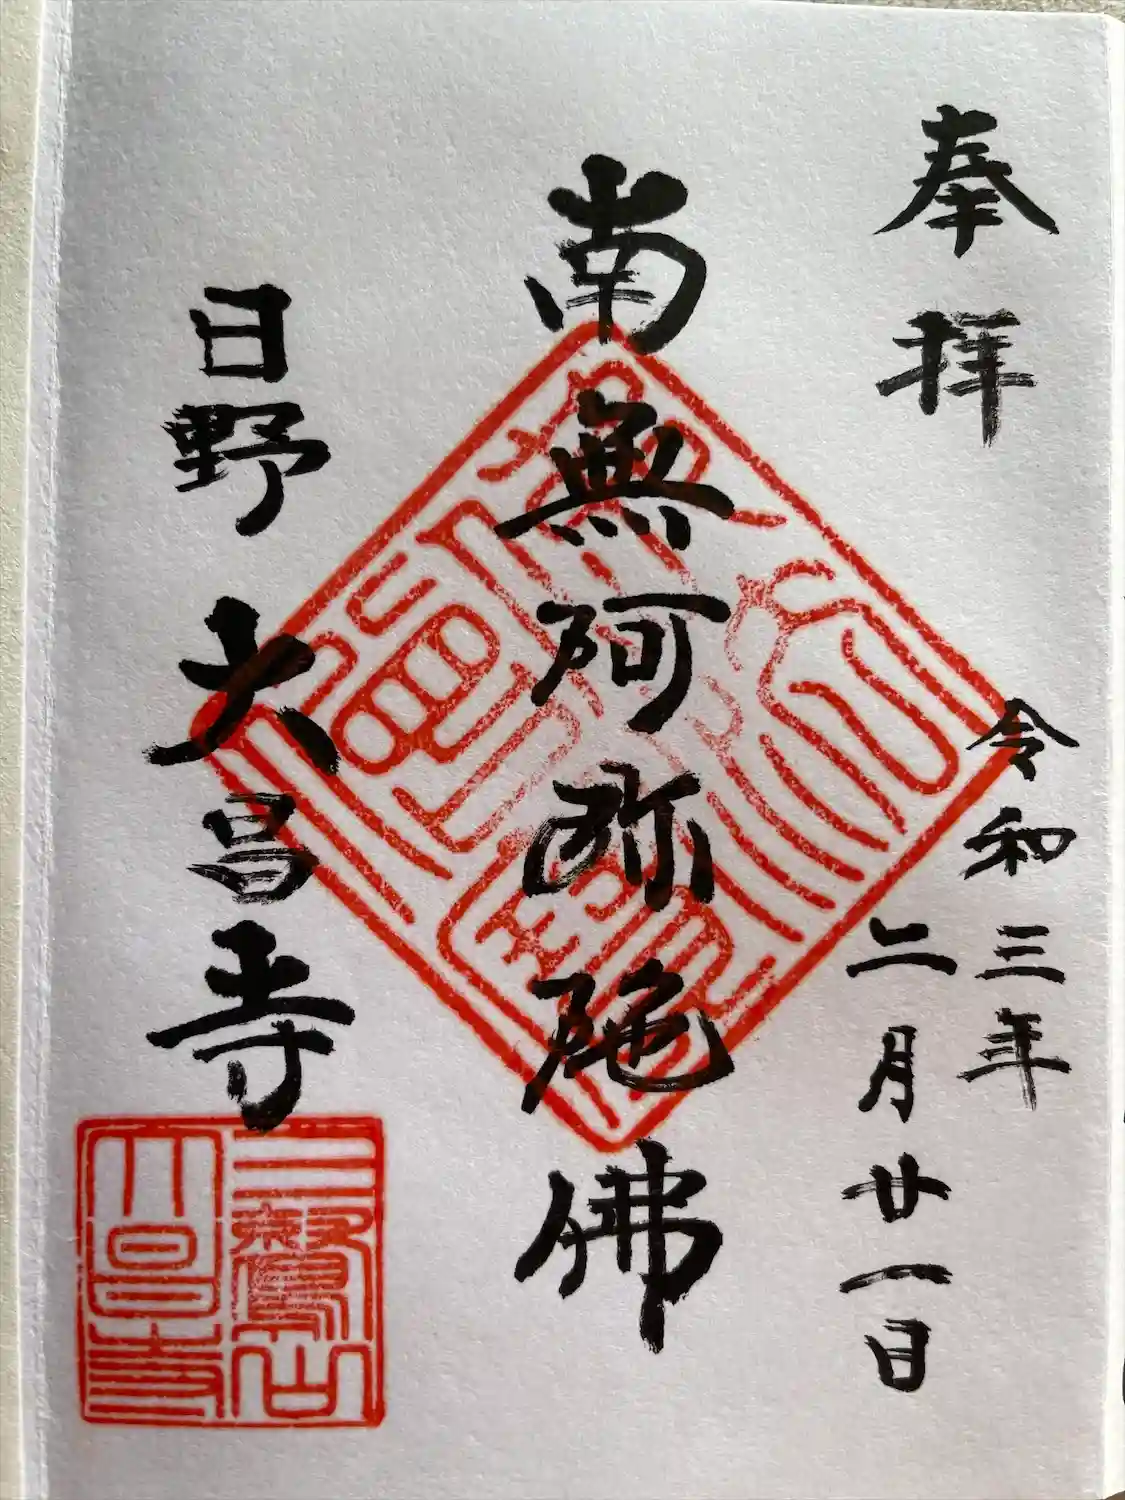 奉拝
令和三年
二月廿一日
南無阿弥陀佛
日野大昌寺